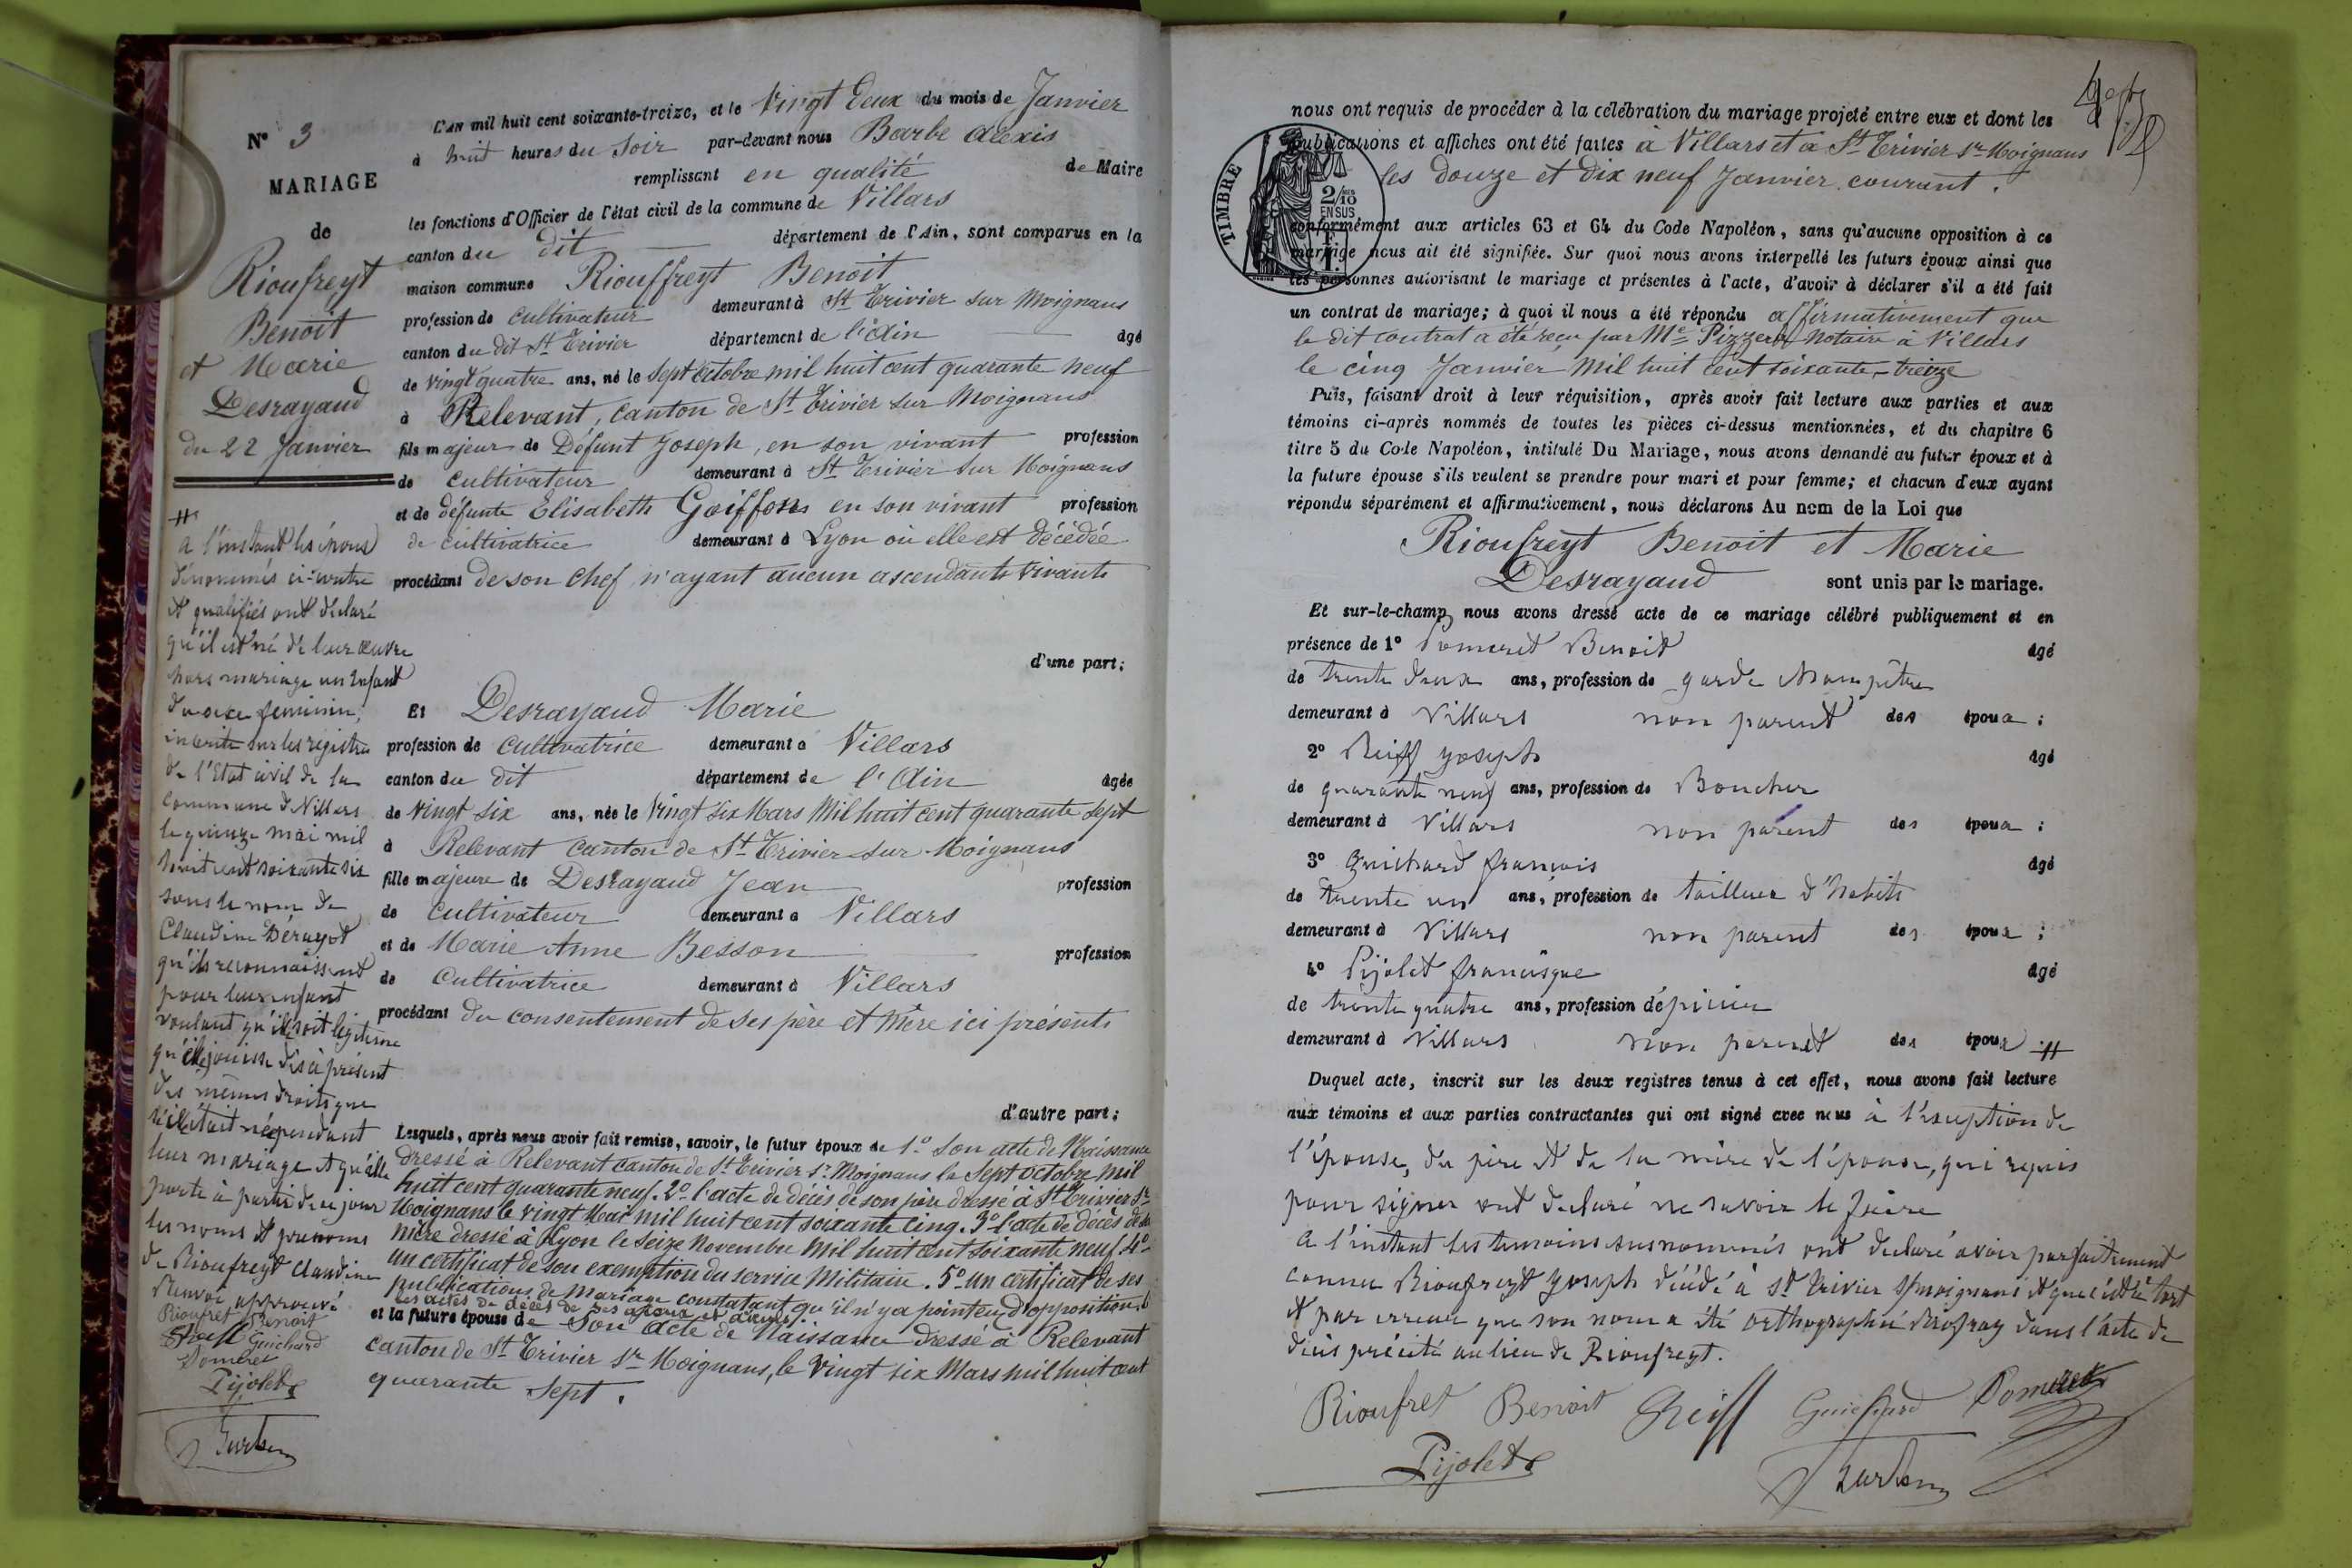 N° 3
MARIAGE
de
Rioufreyt
Benoit
et Marie
Desrayaud
du 22 Janvier
L'an mil huit cent soixante-treize, et le Vingt Deux du mois de Janvier
à huit heures du Soir par-devant nous Barbe Alexis
remplissant en qualité de Maire
les fonctions d'Officier de l'état civil de la commune de Villars
canton du dit département de l'Ain, sont comparus en la
maison commune Riouffreyt Benoit
profession de Cultivateur demeurant à St Trivier sur Moignans
canton du dit St Trivier département de l'Ain âgé
de Vingt quatre ans, né le Sept Octobre mil huit cent quarante neuf
à Relevant, Canton de St Trivier sur Moignans
fils majeur de Défunt Joseph, en son vivant profession
de Cultivateur demeurant à St Trivier sur Moignans
et de défunte Elisabeth Goiffon en son vivant profession
de cultivatrice demeurant à Lyon où elle est Décédée
procédant de son Chef n'ayant aucun ascendants vivants
d'une part;
Et Desrayaud Marie
profession de Cultivatrice demeurant à Villars
canton du dit département de l'Ain âgée
de Vingt six ans, née le Vingt six Mars Mil huit cent quarante sept
à Relevant Canton de St Trivier sur Moignans
fille majeure de Desrayaud Jean profession
de Cultivateur demeurant à Villars
et de Marie Anne Besson profession
de Cultivatrice demeurant à Villars
procédant du consentement de ses père et Mère ici présents
d'autre part;
Lesquels, après nous avoir fait remise, savoir, le futur époux de 1° Son acte de Naissance
dressé à Relevant Canton de St Trivier sr Moignans le Sept octobre Mil
huit cent quarante neuf. 2° l'acte de décès de son père dressé à St Trivier sr
Moignans le vingt Mai mil huit cent soixante cinq. 3° l'acte de décès de sa
mère dressé à Lyon le Seize Novembre Mil huit cent soixante neuf. 4°
un certificat de son exemption du service Militaire. 5° un certificat de ses
publications de Mariage constatant qu'il n'y a point eu d'opposition, 6
les actes de décès de ses aïeux et aïeules
et la future épouse de Son acte de Naissance dressé à Relevant
Canton de St Trivier sr Moignans, le Vingt six Mars mil huit cent
quarante sept.
A l'instant les époux
dénommés ci-contre
et qualifiés ont déclaré
qu'il est né de leur œuvre
hors mariage un Enfant
du sexe féminin,
inscrite sur les registres
de l'Etat civil de la
commune de Villars
le quinze mai mil
huit cent soixante six
sous le nom de
Claudine Dérayot
qu'ils reconnaissent
pour leur enfant
voulant qu'il soit légitime
qu'elle jouisse dès à présent
des mêmes droits que
s'il était né pendant
leur mariage et qu'elle
porte à partir de ce jour
les noms et prénoms
de Rioufreyt Claudine
Renvoi approuvé
Rioufret Benoit
Reiff Guichard
Pomeret
Pijolet
nous ont requis de procéder à la célébration du mariage projeté entre eux et dont les
publications et affiches ont été faites à Villars et à St Trivier sr Moignans
les douze et dix neuf Janvier courant.
TIMBRE
2/10
EN SUS
conformément aux articles 63 et 64 du Code Napoléon, sans qu'aucune opposition à ce
mariage nous ait été signifiée. Sur quoi nous avons interpellé les futurs époux ainsi que
les personnes autorisant le mariage et présentes à l'acte, d'avoir à déclarer s'il a été fait
un contrat de mariage; à quoi il nous a été répondu affirmativement que
le dit contrat a été reçu par Me Notaire à Villars
le cinq Janvier Mil huit cent soixante-treize
Puis, faisant droit à leur réquisition, après avoir fait lecture aux parties et aux
témoins ci-après nommés de toutes les pièces ci-dessus mentionnées, et du chapitre 6
titre 5 du Code Napoléon, intitulé Du Mariage, nous avons demandé au futur époux et à
la future épouse s'ils veulent se prendre pour mari et pour femme; et chacun d'eux ayant
répondu séparément et affirmativement, nous déclarons Au nom de la Loi que
Rioufreyt Benoit et Marie
Desrayaud sont unis par le mariage.
Et sur-le-champ nous avons dressé acte de ce mariage célébré publiquement et en
présence de 1° Pomeret Benoit âgé
de trente deux ans, profession de garde champêtre
demeurant à Villars non parent des époux;
2° Reiff Joseph âgé
de quarante neuf ans, profession de Boucher
demeurant à Villars non parent des époux;
3° Guichard françois âgé
de trente un ans, profession de tailleur d'habits
demeurant à Villars non parent des époux;
4° Pijolet francisque âgé
de trente quatre ans, profession d'épicier
demeurant à Villars non parent des époux
Duquel acte, inscrit sur les deux registres tenus à cet effet, nous avons fait lecture
aux témoins et aux parties contractantes qui ont signé avec nous à l'exception de
l'épouse, du père et de la mère de l'épouse, qui requis
pour signer ont declaré ne savoir le faire
A l'instant les temoins susnommés ont declaré avoir parfaitement
connu Rioufreyt Joseph décédé à St Trivier s/moignans et que c'est à tort
et par erreur que son nom a été orthographié Riofray dans l'acte de
décès précité au lieu de Rioufreyt.
Rioufret Benoit Reiff Guichard Pomeret
Pijolet